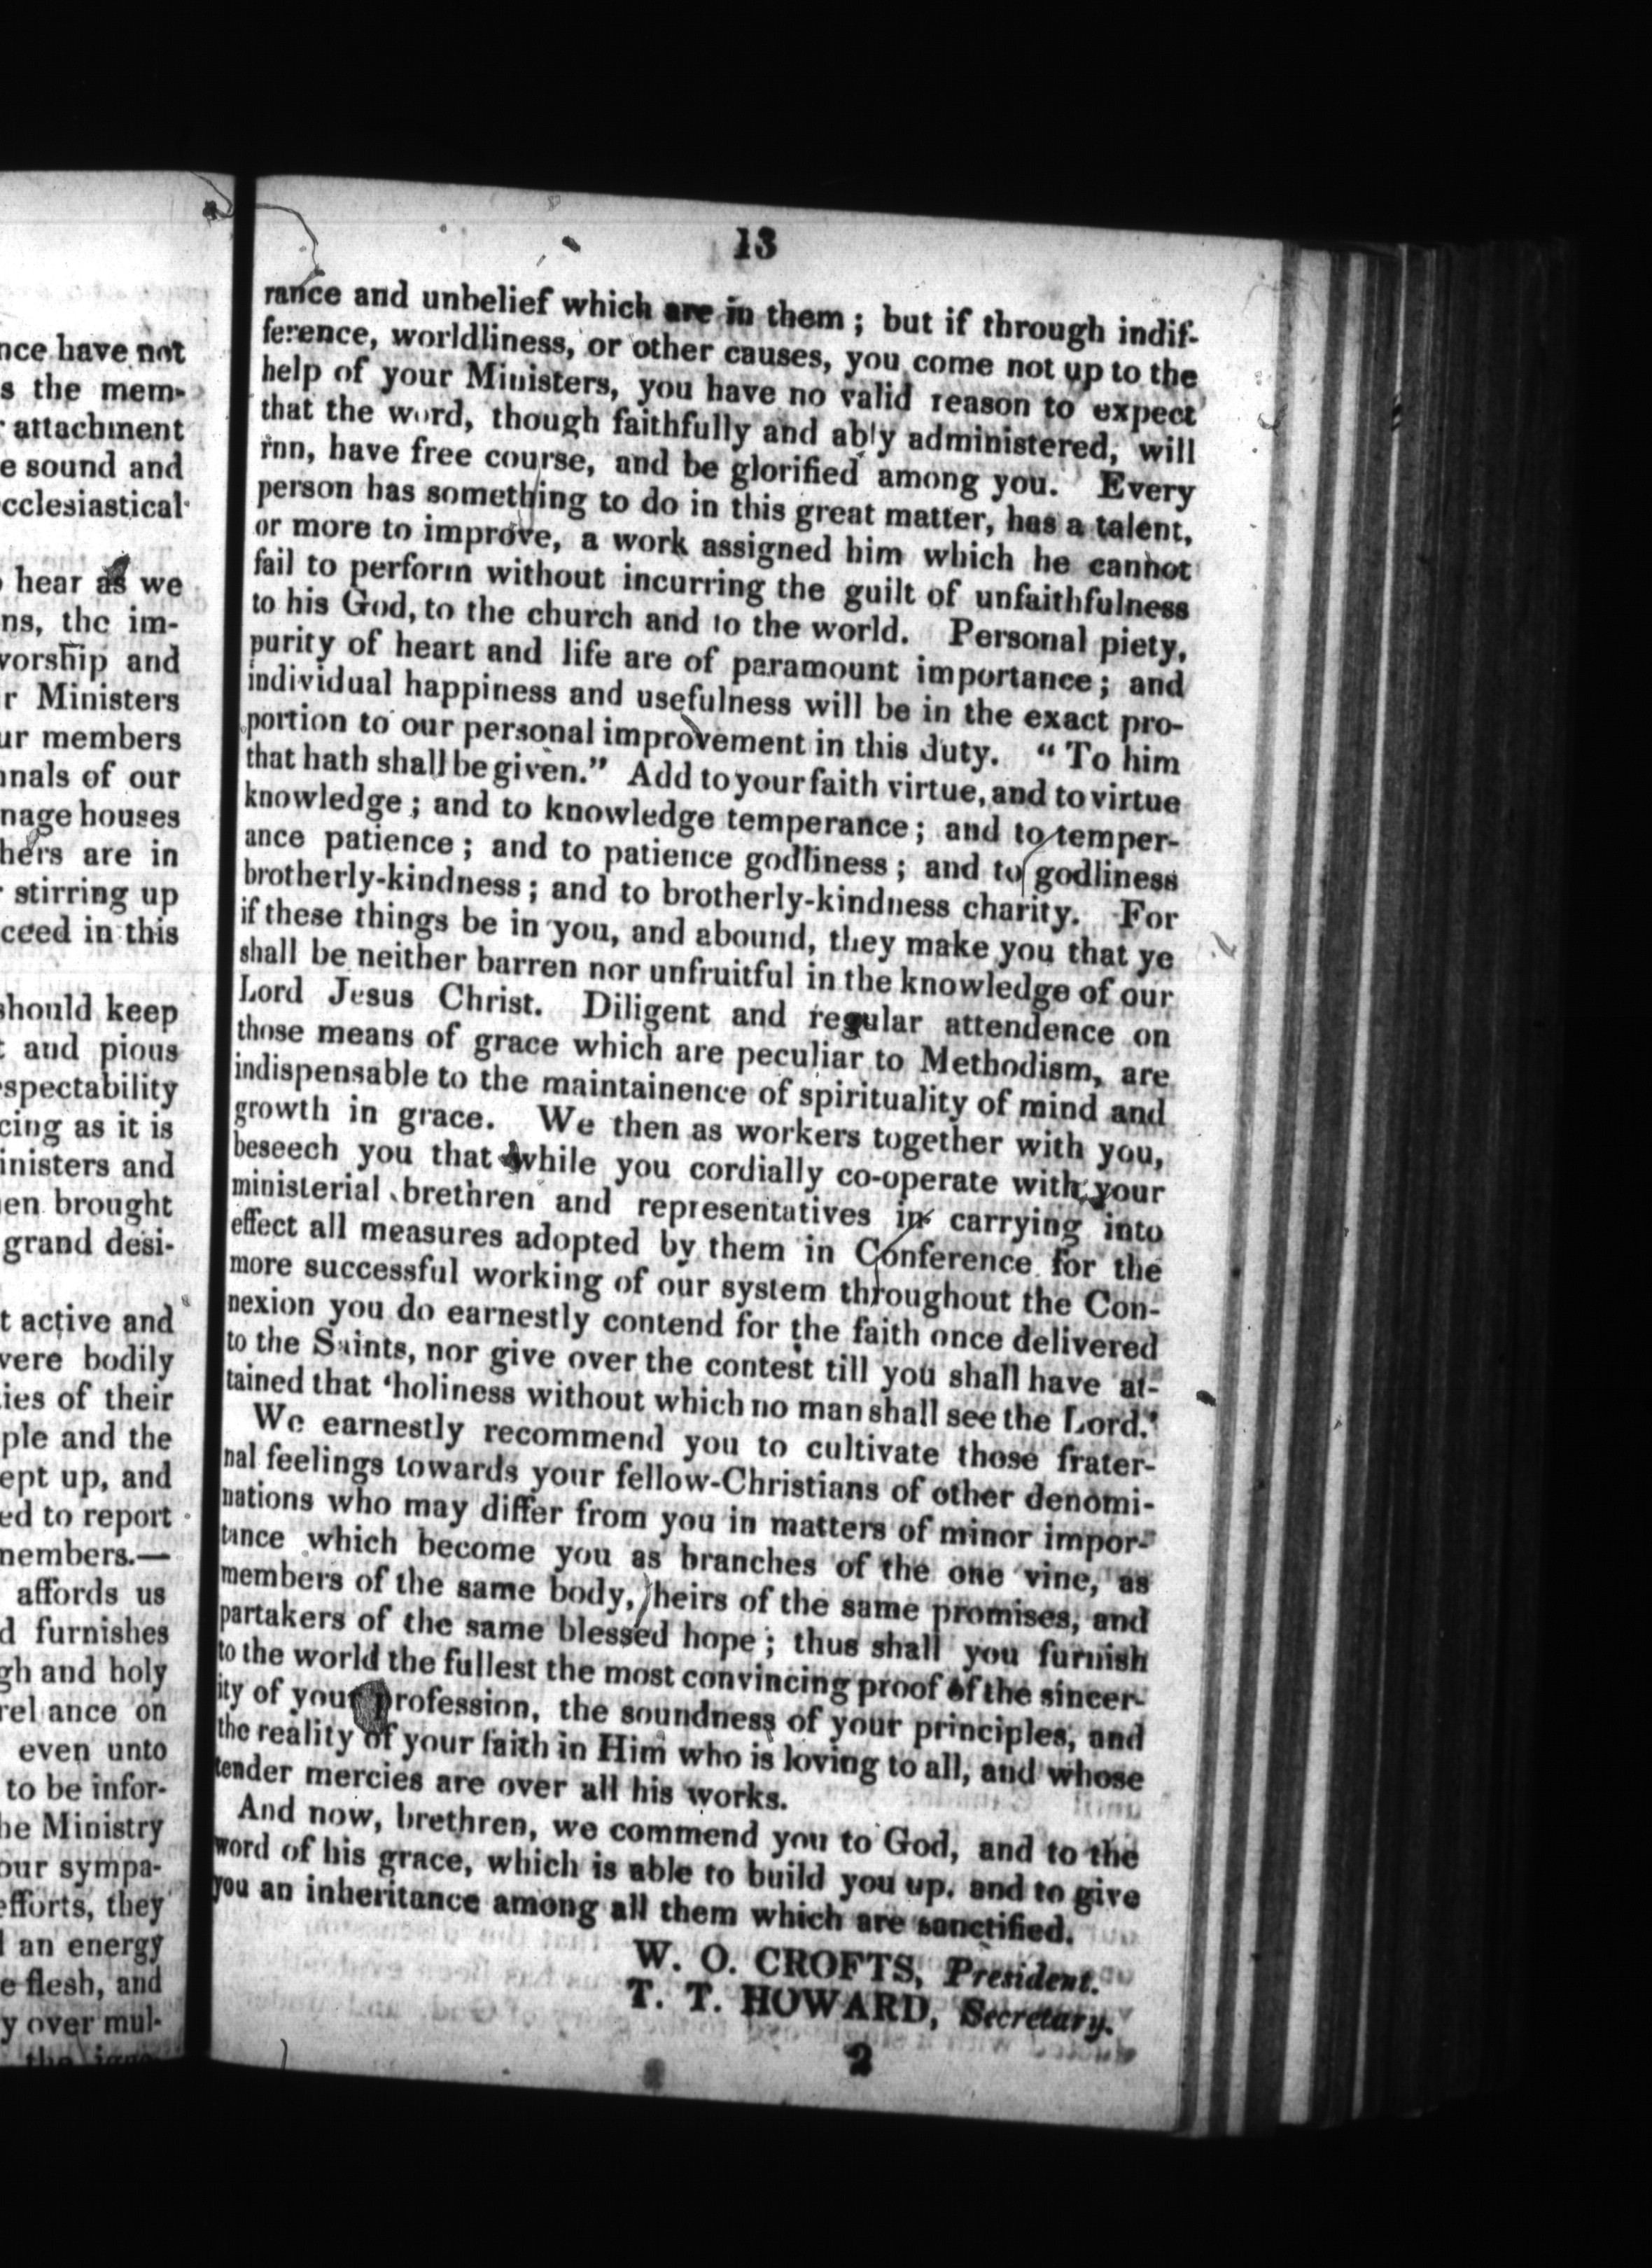 nce have not
s the mem-
attachment
e sound and
cclesiastical
hear as we
ns, the im-
vorship and
r Ministers
ur members
nnals of our
nage houses
hers are in
stirring up
ceed in this
should keep
and pious
spectability
cing as it is
inisters and
en brought
grand desi-
t active and
vere bodily
ies of their
ple and the
ept up, and
ed to report
nembers.—
affords us
d furnishes
gh and holy
rel ance on
even unto
to be infor-
he Ministry
our sympa-
efforts, they
an energy
e flesh, and
y over mul-
13
rance and unbelief which are in them; but if through indif-
ference, worldliness, or other causes, you come not up to the
help of your Ministers, you have no valid reason to expect
that the word, though faithfully and ably administered, will
rnn, have free course, and be glorified among you. Every
person has something to do in this great matter, has a talent,
or more to improve, a work assigned him which he cannot
fail to perform without incurring the guilt of unfaithfulness
to his God, to the church and to the world. Personal piety,
purity of heart and life are of paramount importance; and
individual happiness and usefulness will be in the exact pro-
portion to our personal improvement in this duty. "To him
that hath shall be given." Add to your faith virtue, and to virtue
knowledge; and to knowledge temperance; and to temper-
ance patience; and to patience godliness; and to godliness
brotherly-kindness; and to brotherly-kindness charity. For
if these things be in you, and abound, they make you that ye
shall be neither barren nor unfruitful in the knowledge of our
Lord Jesus Christ. Diligent and regular attendence on
those means of grace which are peculiar to Methodism, are
indispensable to the maintainence of spirituality of mind and
growth in grace. We then as workers together with you,
beseech you that while you cordially co-operate with your
ministerial brethren and representatives in carrying into
effect all measures adopted by them in Conference for the
more successful working of our system throughout the Con-
nexion you do earnestly contend for the faith once delivered
to the Saints, nor give over the contest till you shall have at-
tained that 'holiness without which no man shall see the Lord.'
We earnestly recommend you to cultivate those frater-
nal feelings towards your fellow-Christians of other denomi-
nations who may differ from you in matters of minor impor-
tance which become you as branches of the one vine, as
members of the same body, heirs of the same promises, and
partakers of the same blessed hope; thus shall you furnish
to the world the fullest the most convincing proof of the sincer-
ity of your profession, the soundness of your principles, and
the reality of your faith in Him who is loving to all, and whose
tender mercies are over all his works.
And now, brethren, we commend you to God, and to the
word of his grace, which is able to build you up, and to give
you an inheritance among all them which are sanctified.
W. O. CROFTS, President.
T. T. HOWARD, Secretary.
2